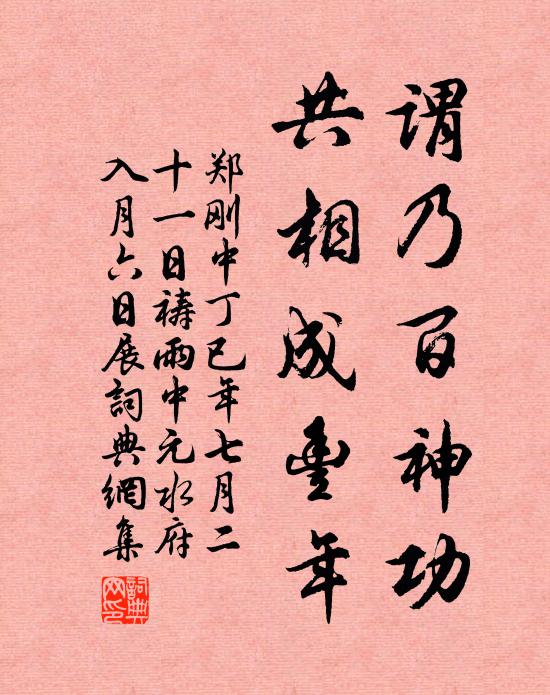 谓乃百神功
共相成丰年
郑刚中丁巳年七月二
十一日祷雨中元水府
入月六日展詞典網集
詞典网印